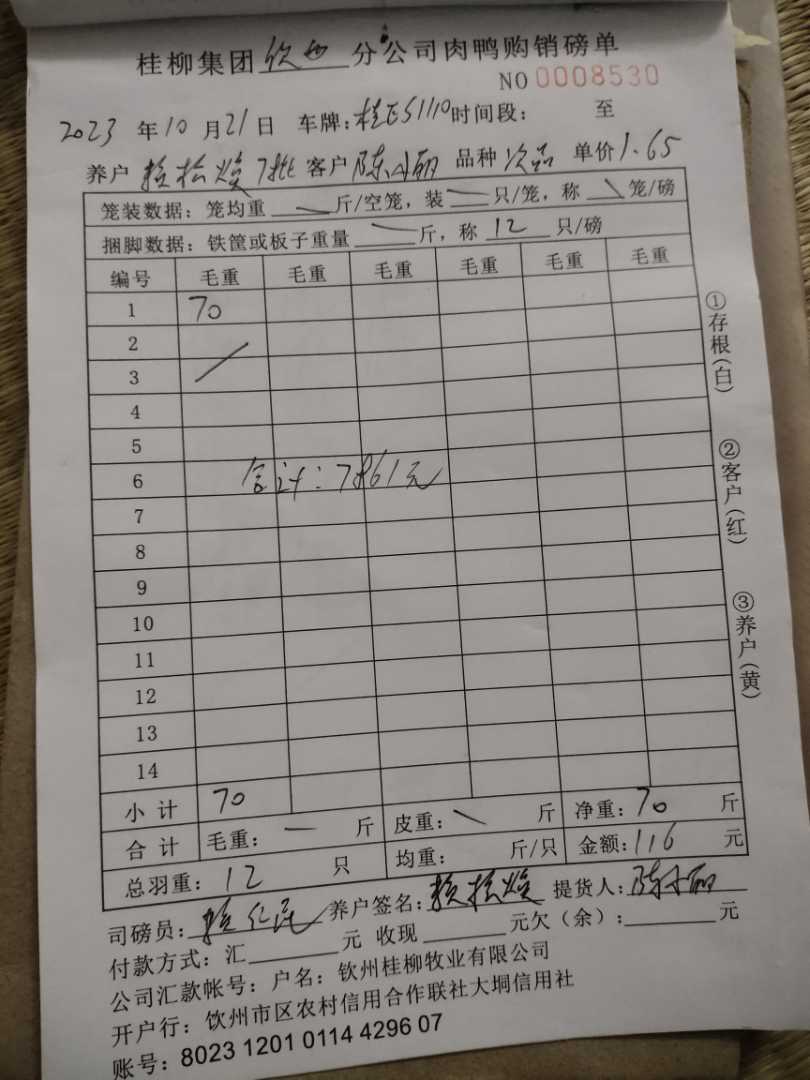 桂柳集团钦州分公司肉鸭购销磅单
NO 0008530
2023 年 10 月 21 日 车牌：桂E51110 时间段： 至
养户 7批 客户 陈小丽 品种 次品 单价 1.65
笼装数据：笼均重 斤/空笼，装 只/笼，称 笼/磅
捆脚数据：铁筐或板子重量 斤，称 12 只/磅
编号 毛重 毛重 毛重 毛重 毛重 毛重
1 70
2
3
4
5
6
合计：7861元
7
8
9
10
11
12
13
14
小计 70
合计 毛重： 斤 皮重： 斤 净重：70 斤
总羽重：12 只 均重： 斤/只 金额：116 元
司磅员： 养户签名： 提货人：陈小丽
付款方式：汇 元 收现 元欠（余）： 元
公司汇款帐号：户名：钦州桂柳牧业有限公司
开户行：钦州市区农村信用合作联社大垌信用社
账号：8023 1201 0114 4296 07
①存根（白）
②客户（红）
③养户（黄）